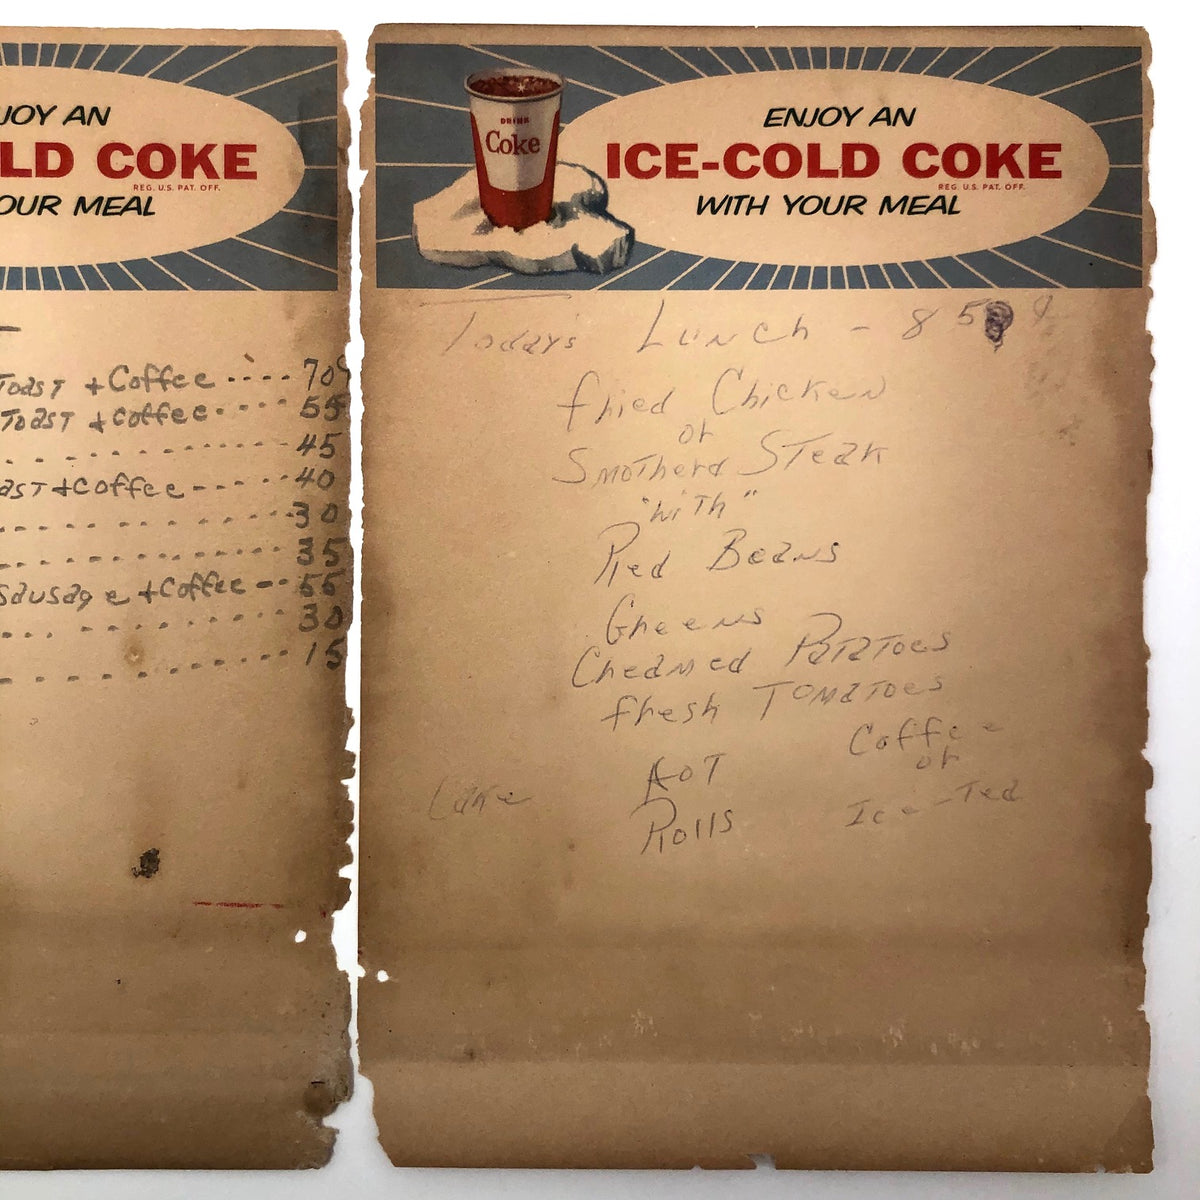 JOY AN
LD COKE
REG. U.S. PAT. OFF.
OUR MEAL
Toast + Coffee .... 70¢
Toast + coffee .... 55
45
ast + Coffee ----- 40
30
35
sausage + Coffee -- 55
30
15
DRINK
Coke
ENJOY AN
ICE-COLD COKE
REG. U.S. PAT. OFF.
WITH YOUR MEAL
Today's Lunch - 85 ¢
fried Chicken
or
Smotherd Steak
"with"
Red Beans
Greens
Creamed Patatoes
fresh Tomatoes
Coffee
or
Ice-Tea
Hot
Rolls
Cake